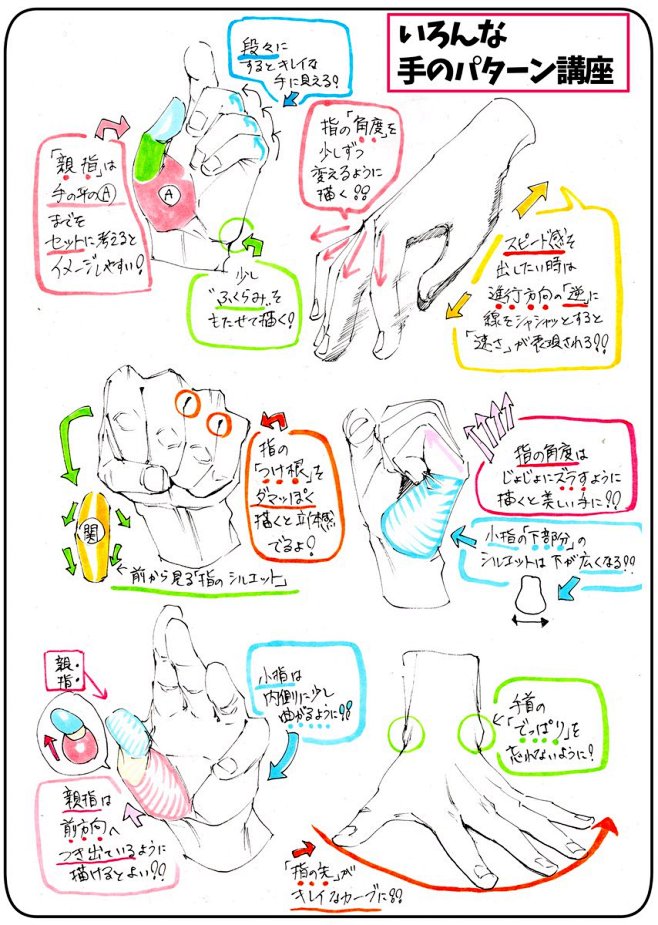 いろんな
手のパターン講座
段々に
するとキレイな
手に見える!
指の「角度」を
少しずつ
変えるように
描く!!
「親指」は
手の平のⒶ
までを
セットに考えると
イメージしやすい!
Ⓐ
少し
"ふくらみ"を
もたせて描く!
スピード感を
出したい時は
進行方向の「逆」に
線をシャシャッとすると
「速さ」が表現される!!
指の
「つけ根」を
ダマっぽく
描くと立体感
でるよ!
関
前から見る「指のシルエット」
指の角度は
じょじょにズラすように
描くと美しい手に!!
小指の「下部分」の
シルエットは下が広くなる!!
親・
指・
小指は
内側に少し
曲がるように!!
親指は
前方向へ
つき出ているように
描けるとよい!!
手首の
「でっぱり」を
忘れないように!
「指の先」が
キレイなカーブに!!